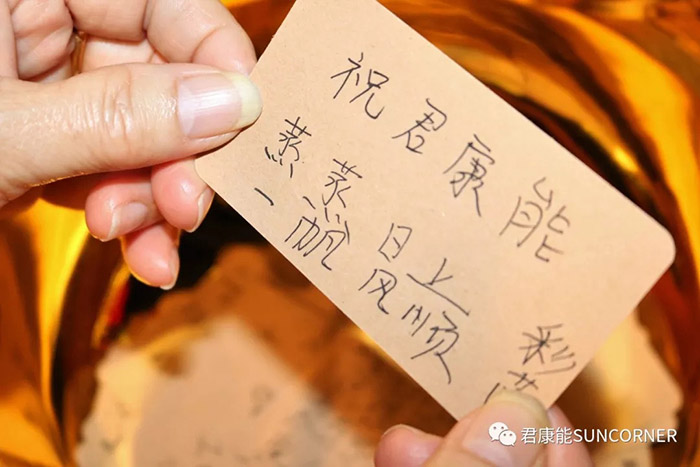 祝君康能
蒸蒸日上
一帆风顺
彩
君康能SUNCORNER